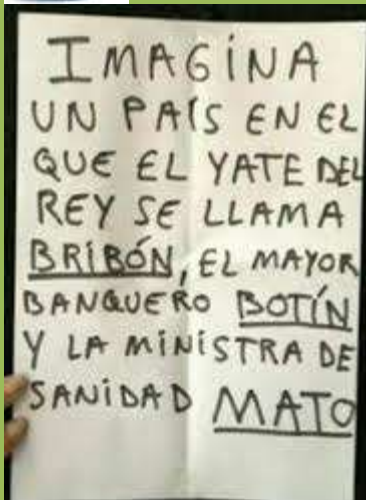 IMAGINA
UN PAÍS EN EL
QUE EL YATE DEL
REY SE LLAMA
BRIBÓN, EL MAYOR
BANQUERO BOTÍN
Y LA MINISTRA DE
SANIDAD MATO